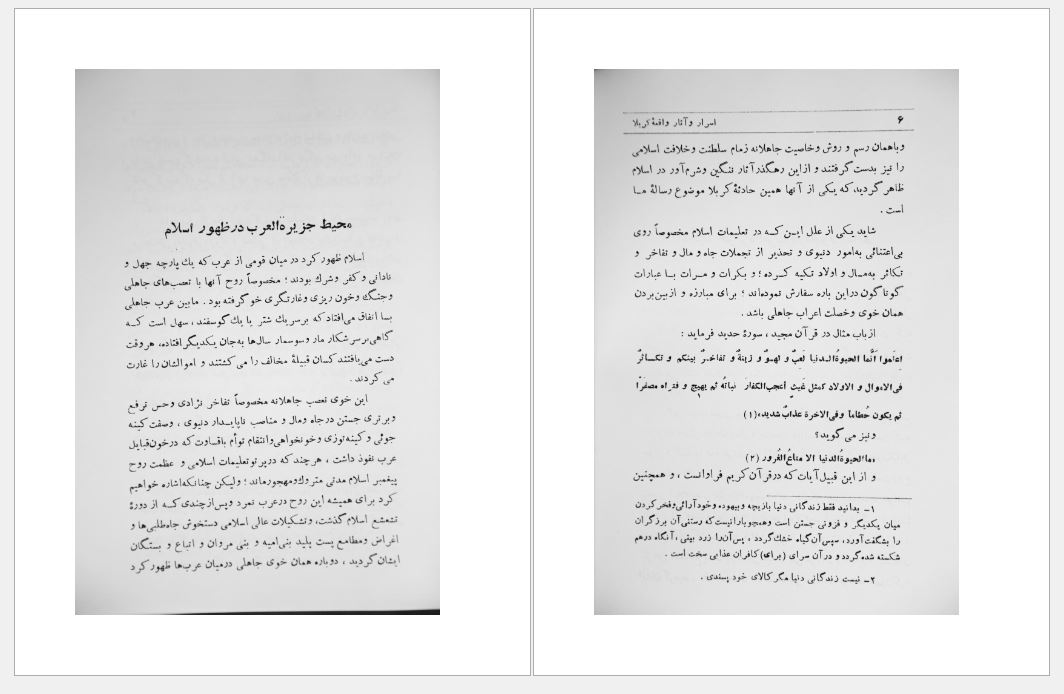 محیط جزیرةالعرب درظهور اسلام
اسلام ظهور کرد در میان قومی از عرب که یك پارچه جهل و
نادانی و کفر و شرك بودند ؛ مخصوصاً روح آنها با تعصب‌های جاهلی
وجنگ وخون ریزی وغارتگری خو گرفته بود . مابین عرب جاهلی
بسا اتفاق می‌افتاد که بر سر یك شتر یا یك گوسفند ، سهل است کـه
گاهی برسر شکار مار و سوسمار سال‌ها به‌جان یکدیگر افتاده، هر وقت
دست می‌یافتند کسان قبیلهٔ مخالف را می کشتند و اموالشان را غارت
می کردند .
این خوی تعصب جاهلانه مخصوصاً تفاخر نژادی وحس ترفع
وبرتری جستن درجاه ومال و مناصب ناپایـدار دنیوی ، وصفت کینه
جوئی و کینه توزی وخونخواهی وانتقام توأم باقساوت که درخون قبایل
عرب نفوذ داشت ، هر چند که درپر تو تعلیمات اسلامی و عظمت روح
پیغمبر اسلام مدتی متروك ومهجور ماند ؛ ولیکن چنانکه اشاره خواهیم
کرد برای همیشه این روح درعرب نمرد وپس ازچندی کـه از دورهٔ
تشعشع اسلام گذشت، وتشکیلات عالی اسلامی دستخوش جاه‌طلبی‌ها و
اغراض ومطامع پست پلید بنی‌امیه و بنی مروان و اتباع و بستگان
ایشان گردید ، دوباره همان خوی جاهلی درمیان عرب‌ها ظهور کرد
۶
اسرار و آثار واقعهٔ کربلا
وباهمان رسم و روش وخاصیت جاهلانه زمام سلطنت وخلافت اسلامی
را نیز بدست گرفتند و ازاین رهگذر آثار ننگین وشرم آور در اسلام
ظاهر گردید که یکی از آنها همین حادثهٔ کربلا موضوع رسالهٔ مـا
است .
شاید یکی از علل ایـن کـه در تعلیمات اسلام مخصوصاً روی
بی‌اعتنائی به‌امور دنیوی و تحذیر از تجملات جاه و مال و تفاخر و
تکاثر به‌مـال و اولاد تکیه کـرده ؛ و بکرات و مـرات بـا عبارات
گوناگون دراین باره سفارش نموده‌اند ؛ برای مبارزه و ازبین بردن
همان خوی وخصلت اعراب جاهلی باشد .
ازباب مثال در قرآن مجید ، سورهٔ حدید فرماید :
اعلموا أنَّما الحیوةُ الـدنیا لعبٌ و لهـوٌ و زینةٌ و تفاخرٌ بینکم و تکـاثرٌ
فی‌الاموال و الاولاد کمثل غیثٍ أعجب‌الکفار نباتُه ثم یهیج و فتراه مصفرّاً
ثم یکون حُطاماً وفی‌الاخرة عذابٌ شدید، (۱)
و نیز می گوید؟
وماالحیوةُالدنیا الا متاعُ‌الغُرور (۲)
و از این قبیل آیات که درقرآن کریم فراوانست ، و همچنین
۱ـ بدانید فقط زندگانی دنیا بازیچه وبیهوده وخودآرائی وفخر کردن
میان یکدیگر و فزونی جستن است وهمچو بارانیست که رستنی آن برزگران
را بشگفت آورد، سپس آن گیاه خشك گردد ، پس آن را زرد بینی ، آنگاه درهم
شکسته شده گردد و در آن سرای (برای) کافران عذابی سخت است .
۲ـ نیست زندگانی دنیا مگر کالای خود پسندی .